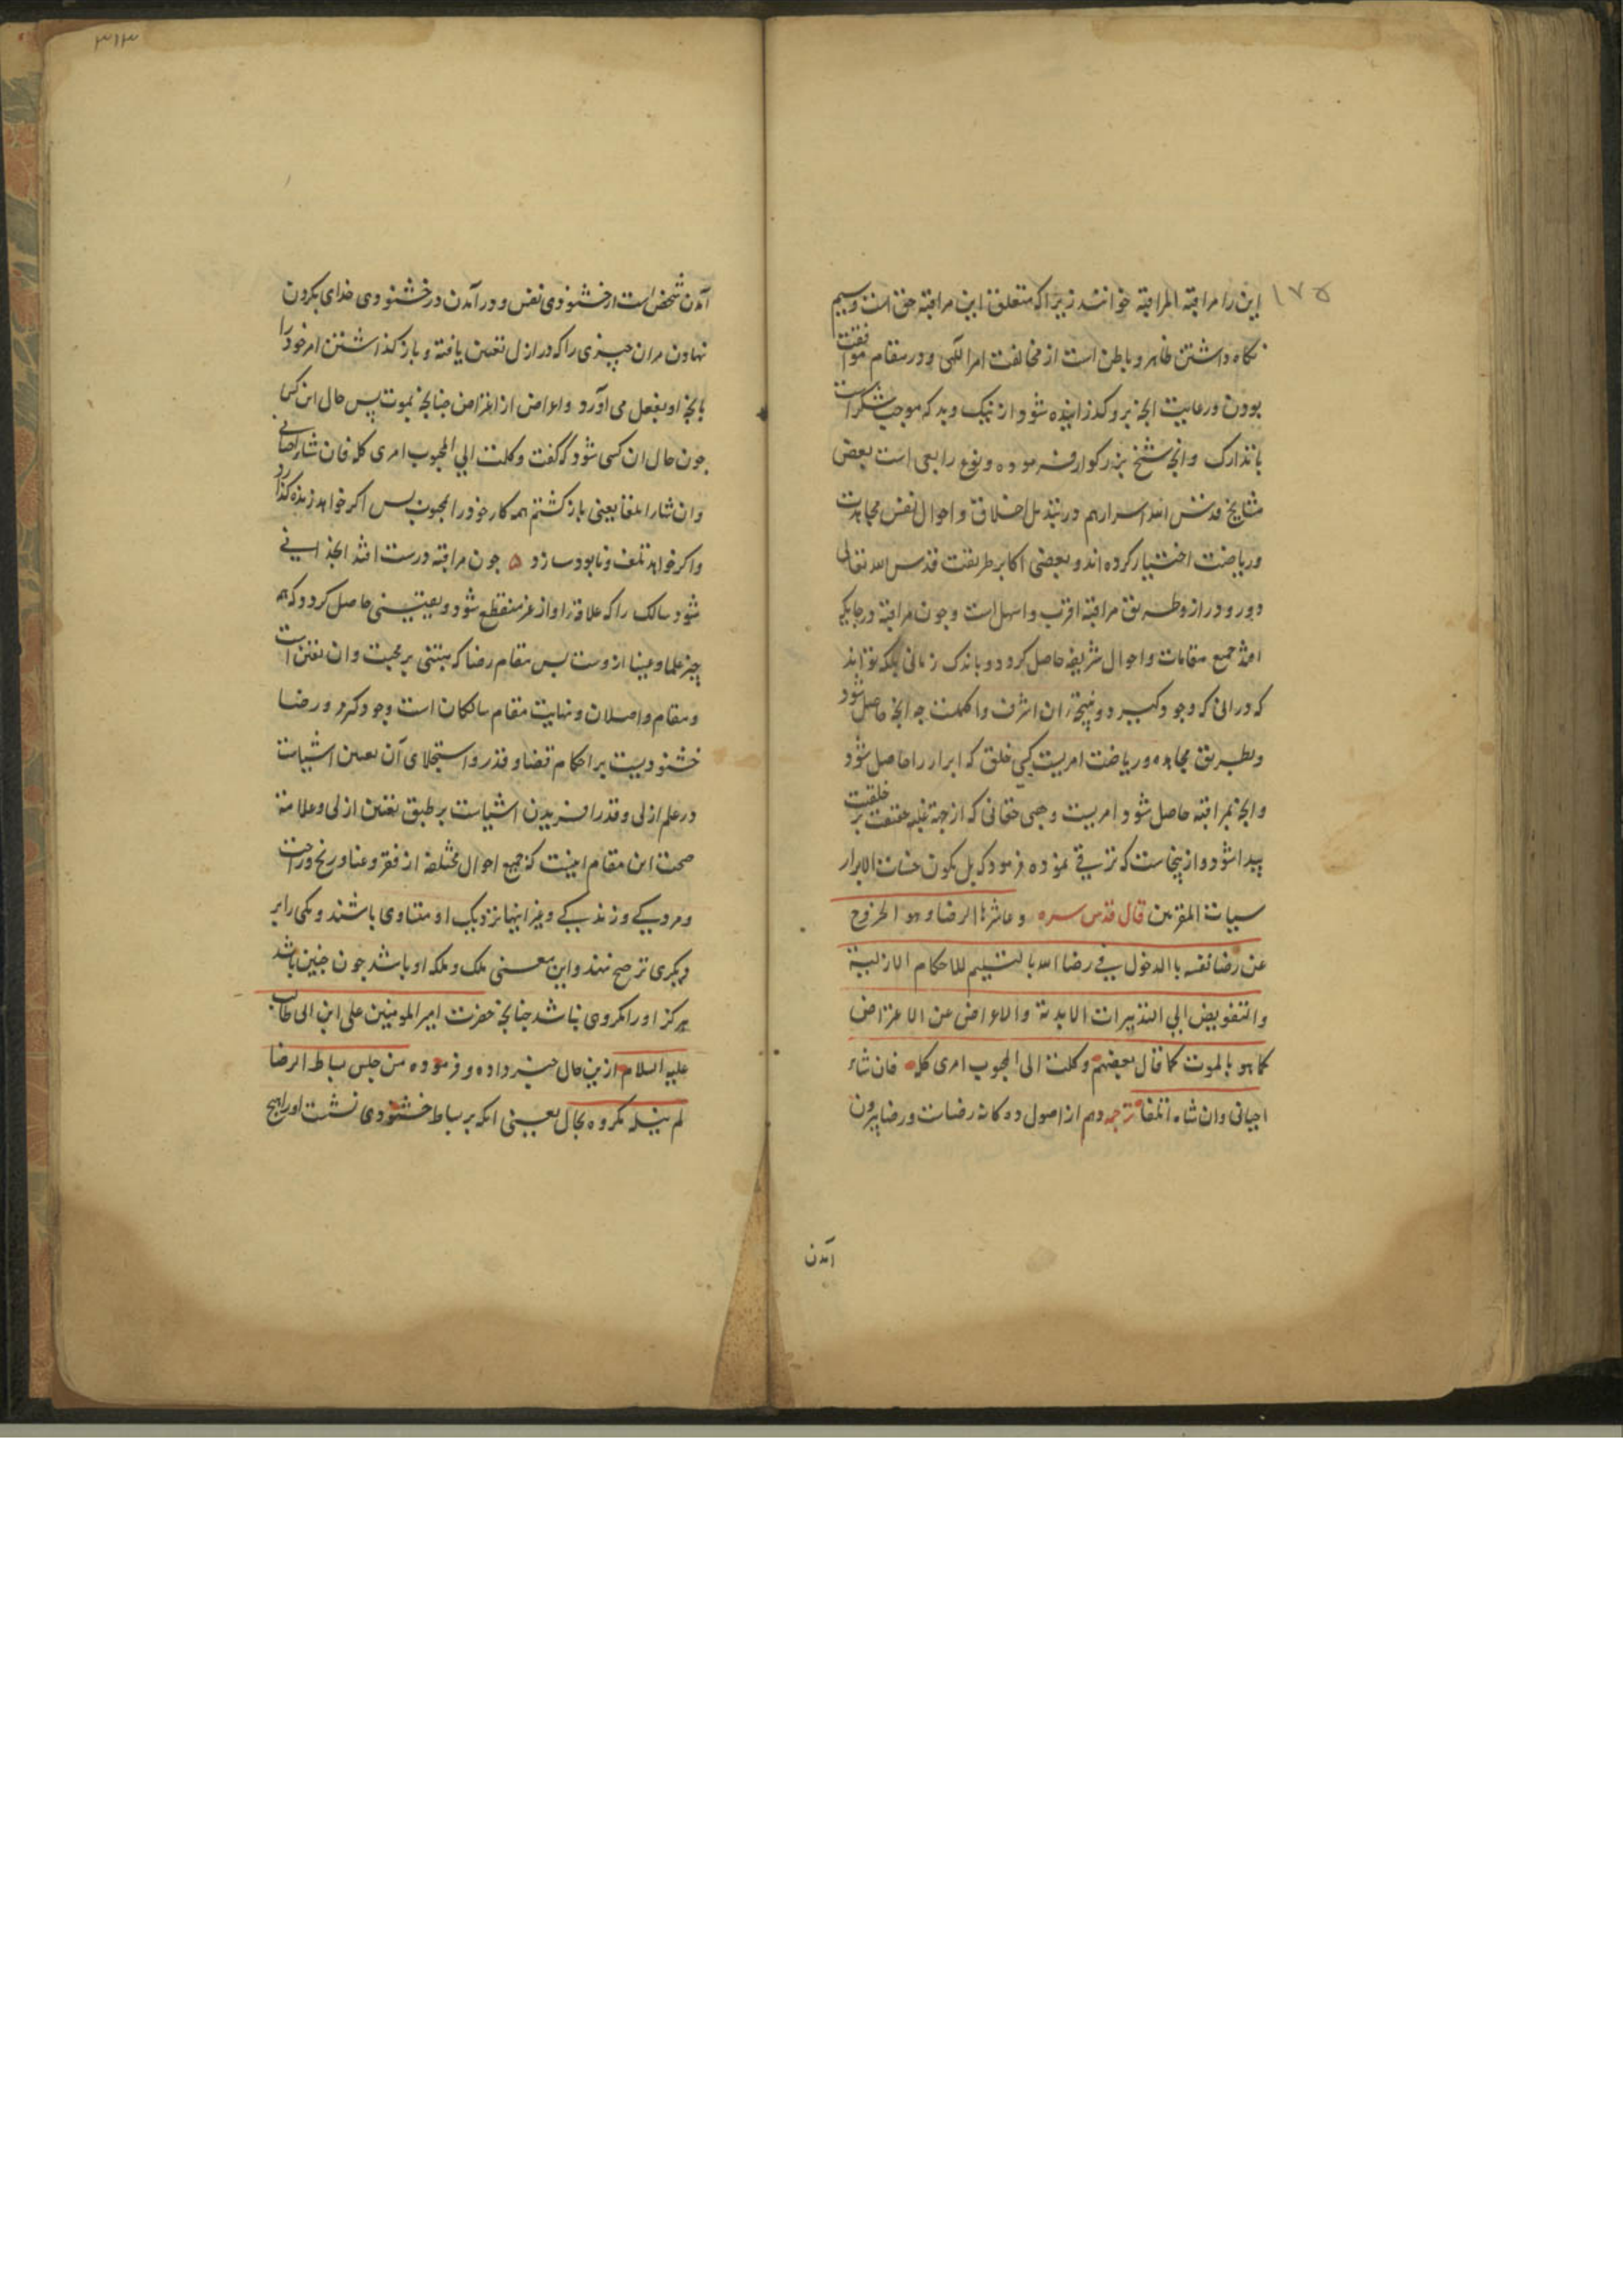 ١٧٥
این را مراقبة المراقبه خوانند زیرا که متعلق این مراقبه حق است وسیم
نکاه داشتن ظاهر و باطن است از مخالفت امر الهی و در مقام موافقت
بودن و رعایت انجه برو کذرانیده شود از نیک و بد که موجب شکر است
یا تدارک وانجه شیخ بزرکوار فرموده و نوع رابعی است بعض
مشایخ قدس الله اسرارهم در تبدیل اخلاق و احوال نفس مجاهدت
و ریاضت اختیار کرده اند و بعضی اکابر طریقت قدس الله تعالی
دور و دراز و طریق مراقبه اقرب و اسهل است و چون مراقبه در جایکه
افتد جمیع مقامات و احوال شریفه حاصل کردد و باندک زمانی بلکه تواند
که در انی که وجود کیرد و نتیجۀ ان اشرف و اکملست چه انجه حاصل شود
وبطریق مجاهده و ریاضت امریست کسبی خلق که ابرار را حاصل شود
وانجه بمراقبه حاصل شود امریست وهبی حقانی که از جهة غلبه حقیقت بر خلقیت
پیدا شود و از ینجاست که ترقی نموده فرمود که بل یکون حسنات الابرار
سیات المقربین قال قدس سره و عاشرها الرضا و هو الخروج
عن رضا نفسه با الدخول فی رضا الله بالتسلیم للاحکام الازلیة
والتفویض الی التدبیرات الابدیة والاعراض عن الاعتراض
کما هو بالموت کما قال بعضهم وکلت الی المحبوب امری کله فان شاء
احیانی وان شاء اتلفا ترجمه دهم از اصول ده کانه رضاست و رضا بیرون
آمدن
٣١٣
آمدن شخص است از خشنودی نفس و در آمدن در خشنودی خدای بکردن
نهادن مران چیزی را که در ازل تعین یافته و باز کذاشتن امر خود را
بانچه او بفعل می آورد و اعراض از اعتراض چنانچه بموت پس حال این کس
چون حال ان کسی شود که گفت وکلت الی المحبوب امری کله فان شاء احیانی
وان شاء اتلفا یعنی باز کشتم همه کار خود را بمحبوب پس اکر خواهد زنده کذارد
واکر خواهد تلف و نابود سازد ۵ چون مراقبه درست افتد انجذابی
شود سالک را که علاقۀ او از غیر منقطع شود و یقینی حاصل کردد که همه
چیز علما و عینا ازوست پس مقام رضا که مبتنی بر محبت وان یقین است
و مقام واصلان و نهایت مقام سالکان است وجود کیرد و رضا
خشنودیست بر احکام قضا و قدر و استجلای آن تعین اشیاست
در علم ازلی و قدر افریدن اشیاست بر طبق تعین ازلی و علامة
صحت این مقام اینست که جمیع احوال مختلفه از فقر و غنا و رنج و راحت
و مردکی و زندکی و غیر اینها نزدیک او متساوی باشند و یکی را بر
دیکری ترجیح ننهد واین معنی ملک و ملکه او باشد چون چنین باشد
هرکز او را مکروهی نباشد چنانچه حضرت امیر المومنین علی ابن ابی طالب
علیه السلام ازین حال خبر داده و فرموده من جلس بساط الرضا
لم ینله مکروه بحال یعنی انکه بر بساط خشنودی نشست او را هیچ